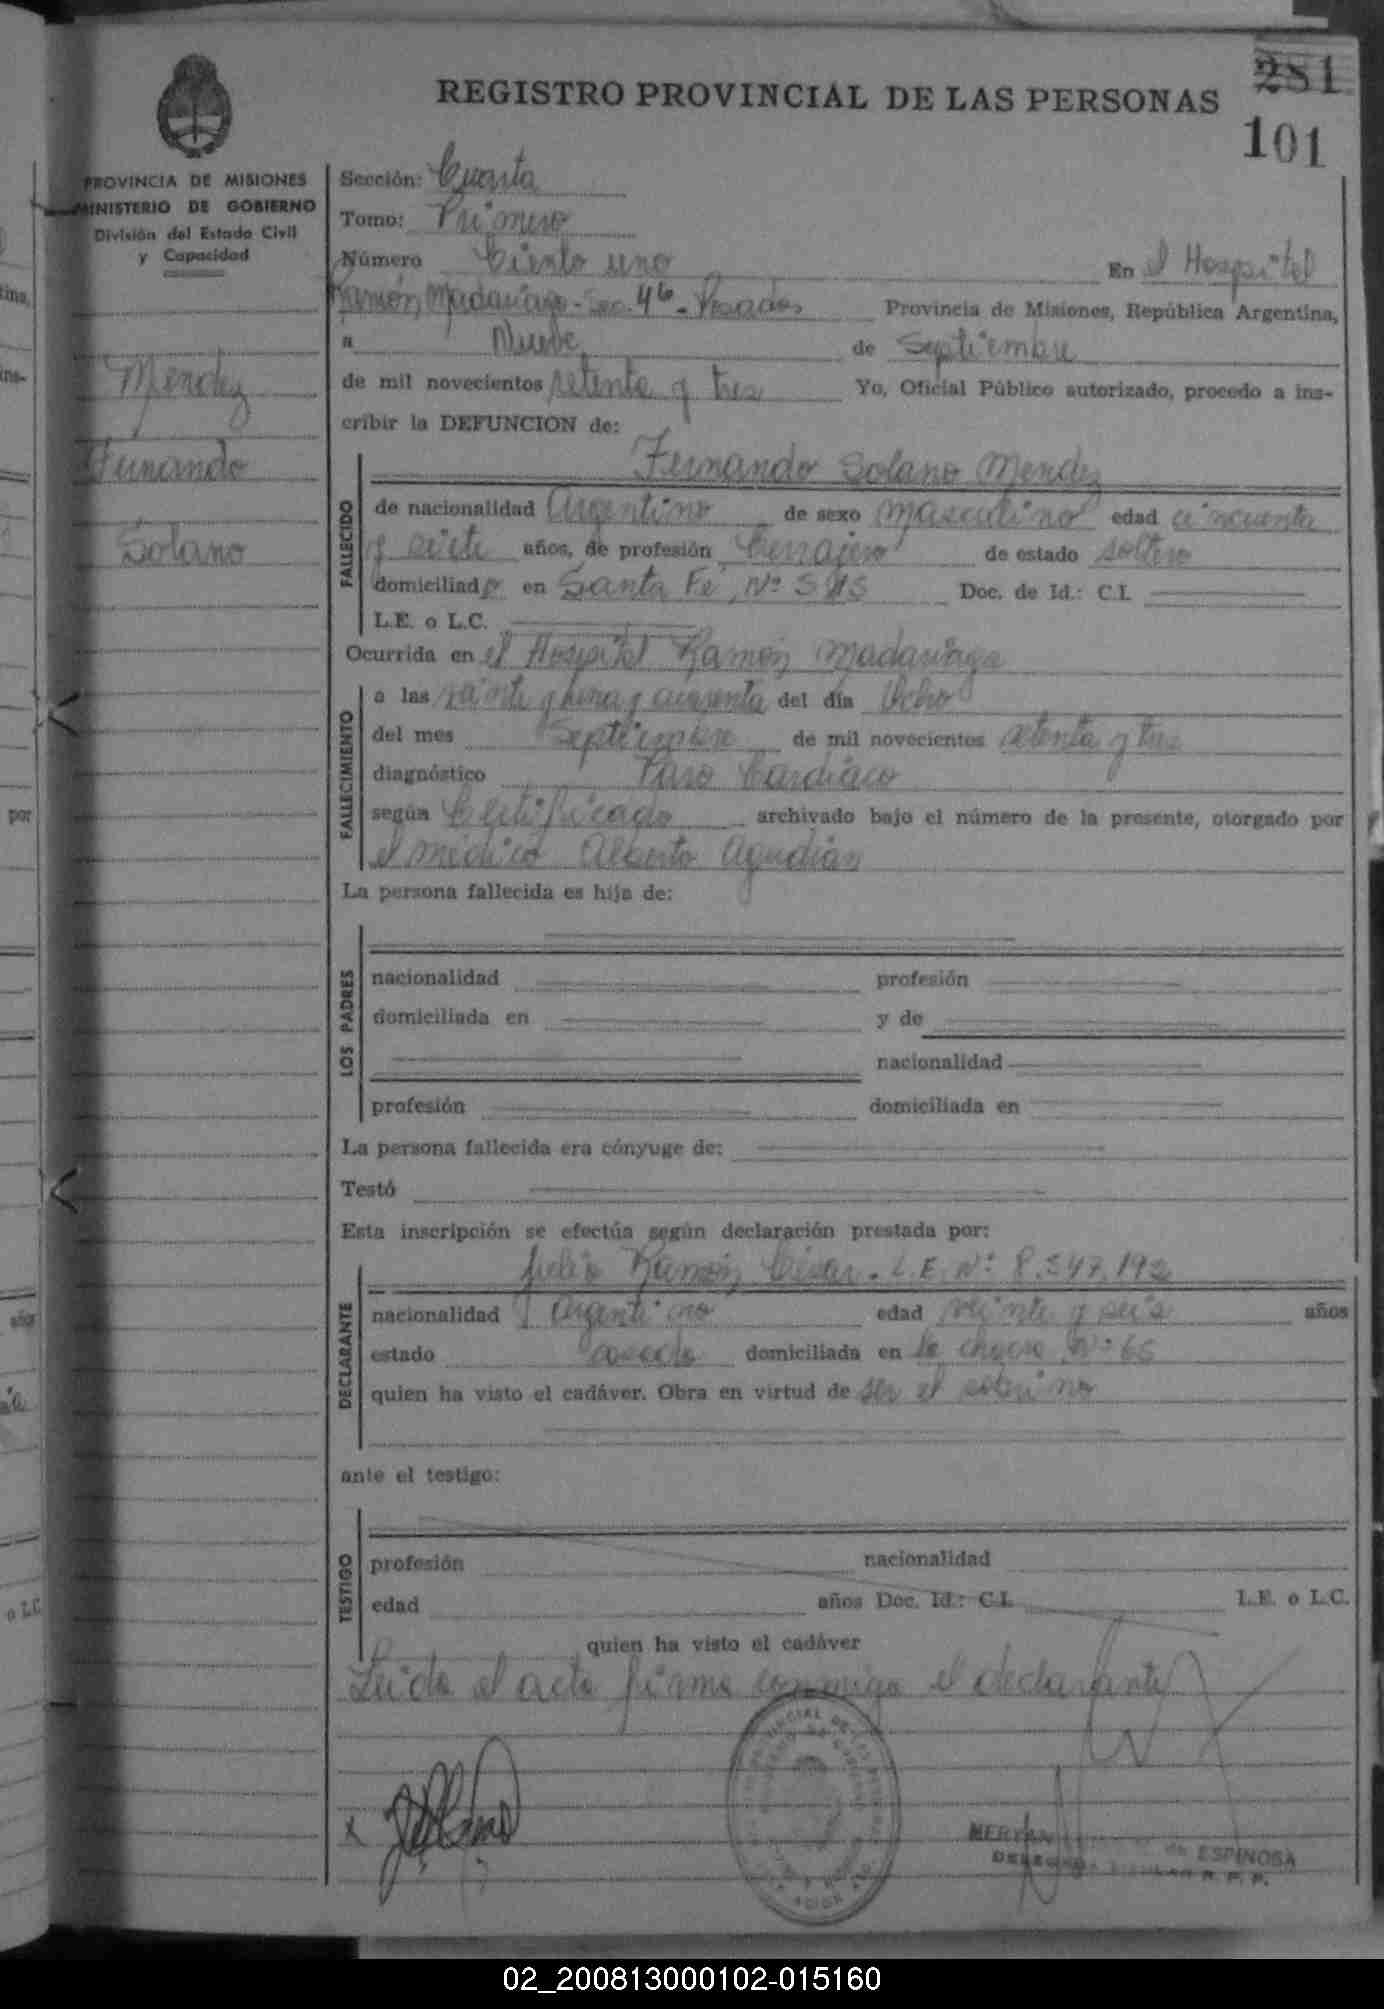 281
REGISTRO PROVINCIAL DE LAS PERSONAS
101
PROVINCIA DE MISIONES
MINISTERIO DE GOBIERNO
División del Estado Civil
y Capacidad
Mendez
Fernando
Solano
Sección: Cuarta
Tomo: Primero
Número Ciento uno En el Hospital
Ramón Madariaga - Sec. 4ta - Posadas Provincia de Misiones, República Argentina,
a Nueve de Septiembre
de mil novecientos setenta y tres Yo, Oficial Público autorizado, procedo a ins-
cribir la DEFUNCION de:
FALLECIDO
Fernando Solano Mendez
de nacionalidad Argentino de sexo masculino edad cincuenta
y siete años, de profesión Cerrajero de estado soltero
domiciliado en Santa Fé, Nº Doc. de Id.: C.I.
L.E. o L.C.
Ocurrida en el Hospital Ramón Madariaga
FALLECIMIENTO
a las veinte y hora y cuarenta del día Ocho
del mes Septiembre de mil novecientos setenta y tres
diagnóstico Paro Cardíaco
según Certificado archivado bajo el número de la presente, otorgado por
el médico Alberto
La persona fallecida es hija de:
LOS PADRES
nacionalidad profesión
domiciliada en y de
nacionalidad
profesión domiciliada en
La persona fallecida era cónyuge de:
Testó
Esta inscripción se efectúa según declaración prestada por:
DECLARANTE
Julio Ramón César. L.E. Nº 8.347.192
nacionalidad Argentino edad veinte y seis años
estado casado domiciliada en la chacra Nº 65
quien ha visto el cadáver. Obra en virtud de ser el sobrino
ante el testigo:
TESTIGO
profesión nacionalidad
edad años Doc. Id.: C.I. L.E. o L.C.
quien ha visto el cadáver
Leida el acta firma conmigo el declarante
X
de ESPINOSA
R. P. P.
02_200813000102-015160